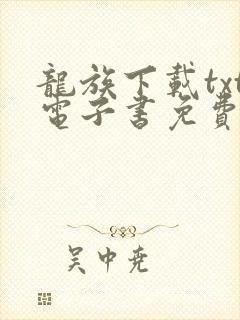 龍族下載txt
電子書免費
吴中尭